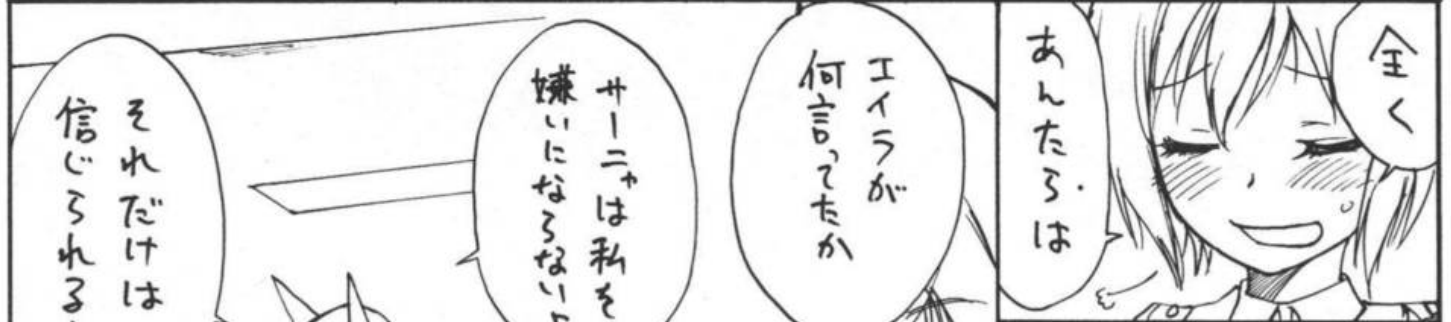 全く
あんたらは
エイラが
何言ってたか
サーニャは私を
嫌いにならない
それだけは
信じられる